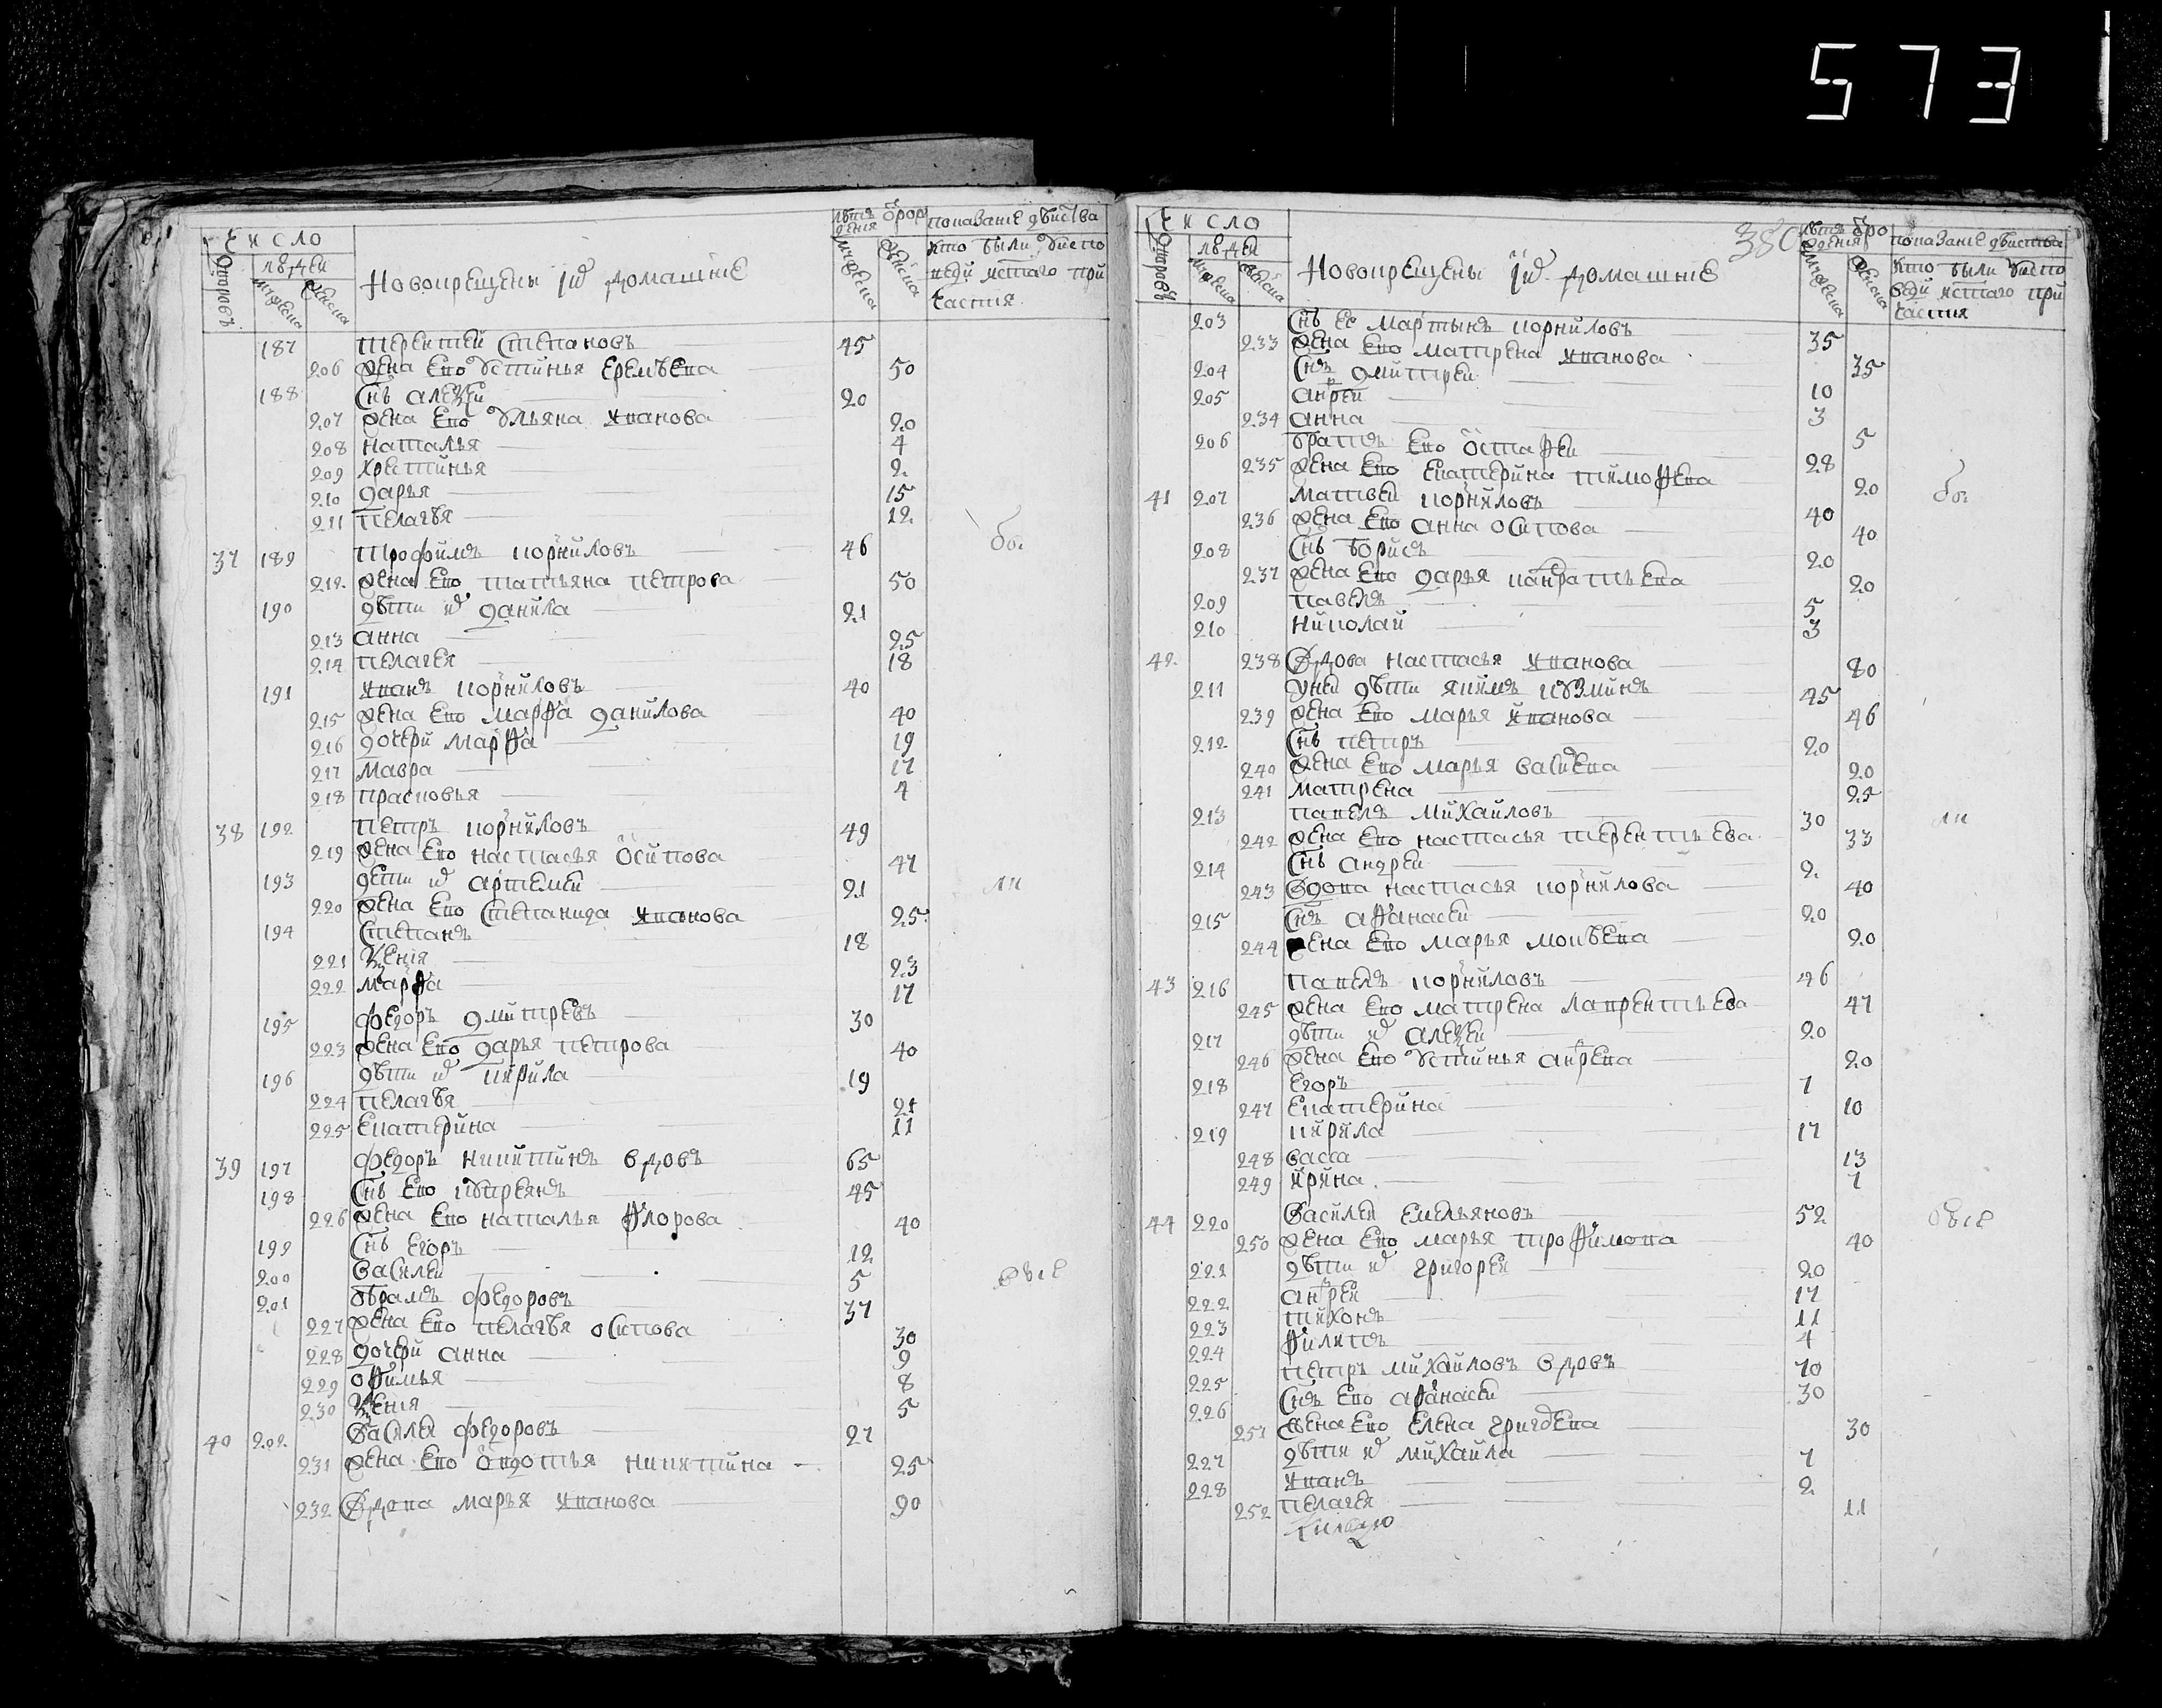 573
Число
людей
Новокрещены и домашние
187 Терентей Степановъ 45
206 жена его Устинья Еремѣева 50
188 Снъ Алеѯей 20
207 жена его Ульяна Иванова 20
208 Наталья 4
209 Хрестинья 2
210 Дарья 15
211 Пелагѣя 12
37 189 Трофимъ Корниловъ 46
212 жена его Татьяна Петрова 50
190 дѣти их Данила 21
213 Анна 25
214 Пелагея 18
191 Иванъ Корниловъ 40
215 жена его Марѳа Данилова 40
216 дочери Марѳа 19
217 Мавра 17
218 Прасковья 4
38 192 Петръ Корниловъ 49
219 жена его Настасья Осипова 47
193 дети их Артемей 21
220 жена его Степанида Иванова 25
194 Степанъ 18
221 Ѯения 23
222 Марѳа 17
195 Федоръ Дмитревъ 30
223 жена его Дарья Петрова 40
196 дѣти их Кирила 19
224 Пелагѣя 21
225 Екатерина 11
39 197 Федоръ Никитинъ вдовъ 65
198 Снъ его Кѹпреянъ 45
226 жена его Наталья Ѳлорова 40
199 Снъ Егоръ 12
200 Василей 5
201 Абрамъ Федоровъ 37
227 жена его Пелагѣя Осипова 30
228 дочери Анна 9
229 Оѳимья 8
230 Ѯения 5
40 202 Василей Федоровъ 27
231 жена его Овдотья Никитина 25
232 Вдова Марья Иванова 90
380
Число
людей
Новокрещены их домашние
203 Снъ ее Мартынъ Корниловъ 35
233 жена его Матрена Иванова 35
204 Снъ Дмитрей 10
205 Андрей 3
234 Анна 5
206 братъ его Остаѳей 28
235 жена его Екатерина Тимоѳева 20
41 207 Матвей Корниловъ 40
236 жена его Анна Осипова 40
208 Снъ Борисъ 20
237 жена его Дарья Панкратьева 20
209 Павелъ 5
210 Николай 3
42 238 Вдова Настасья Иванова 80
211 у ней дѣти Якимъ Кузминъ 45
239 жена его Марья Иванова 46
212 Снъ Петръ 20
240 жена его Марья Васильева 20
241 Матрена 25
213 Павелъ Михайловъ 30
242 жена его Настасья Терентьева 33
214 Снъ Андрей 2
243 Вдова Настасья Корнилова 40
215 Снъ Аѳанасей 20
244 жена его Марья Моисеева 20
43 216 Павелъ Корниловъ 46
245 жена его Матрена Лаврентьева 47
217 дѣти их Алеѯей 20
246 жена его Устинья Андреева 20
218 Егоръ 7
247 Екатерина 10
219 Кирила 17
248 Васса 13
249 Ирина 7
44 220 Василей Емельяновъ 52
250 жена его Марья Троѳимова 40
221 дѣти их Григорей 20
222 Андрей 17
223 Тихонъ 11
224 Ѳилипъ 4
225 Петръ Михайловъ вдовъ 70
226 Снъ его Аѳанасей 30
251 жена его Елена Григорева 30
227 дѣти их Михайла 7
228 Иванъ 2
252 Пелагея 11